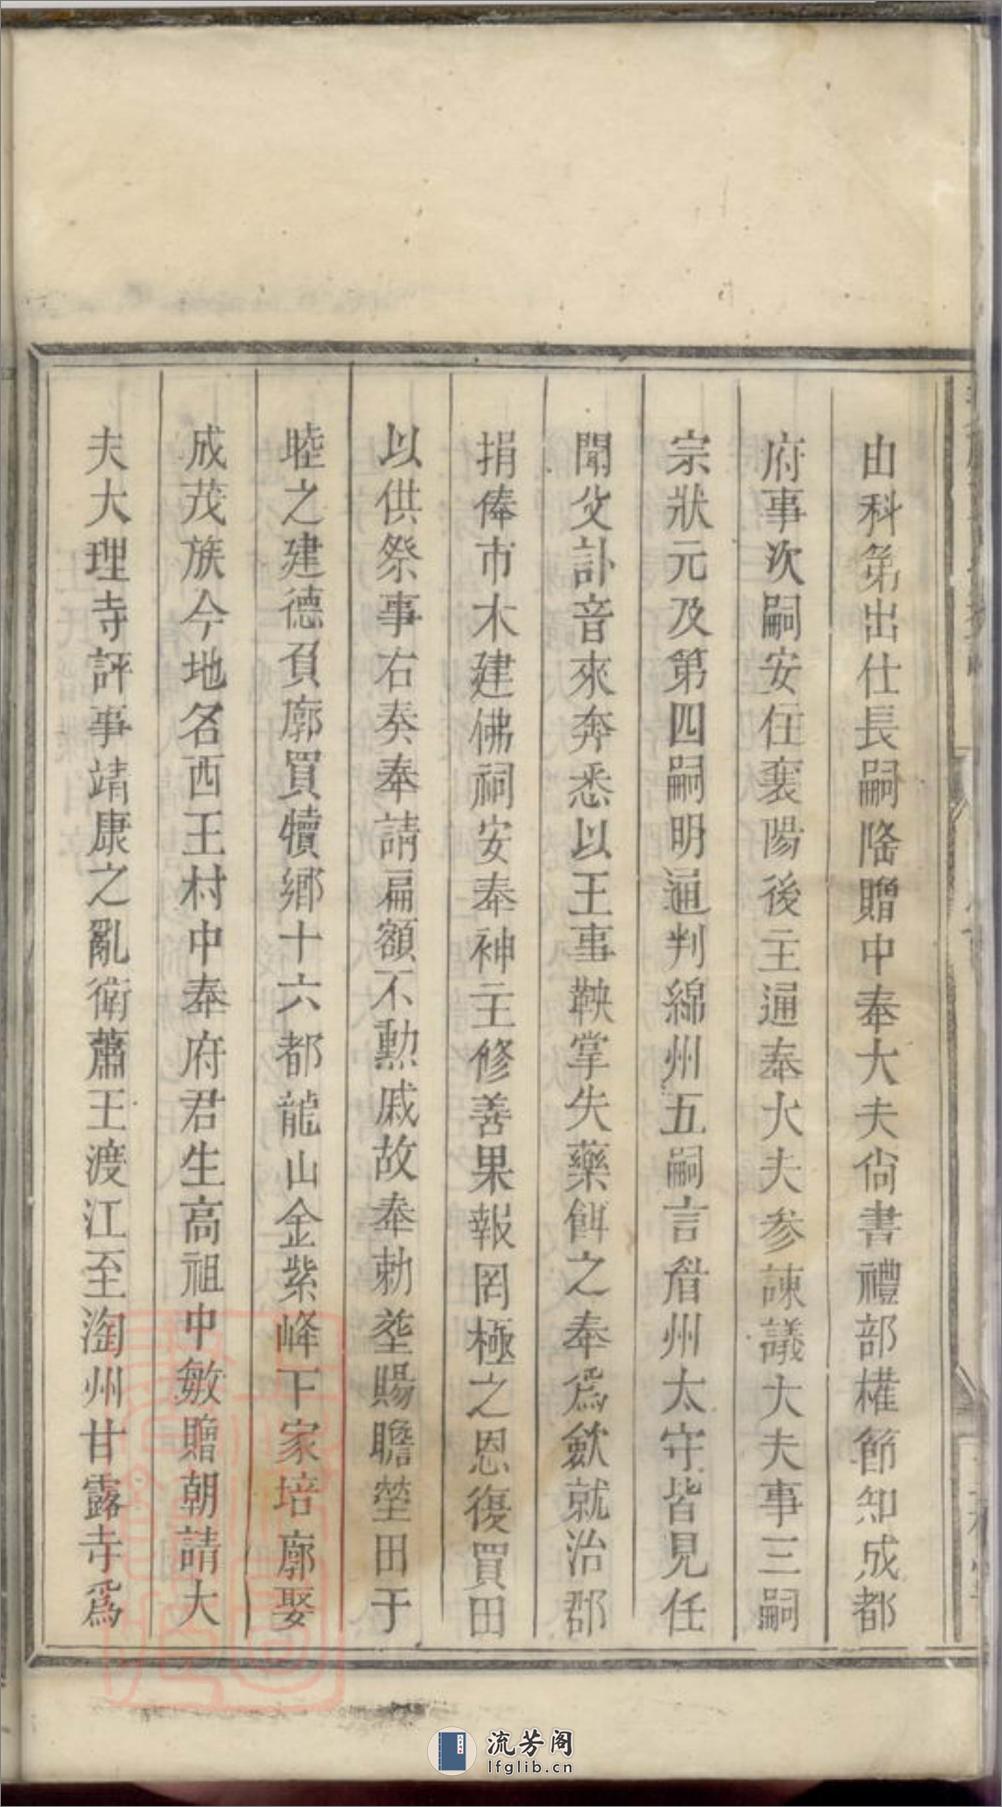 由科第出仕長嗣隆贈中奉大夫尙書禮部權節知成都
府事次嗣安任襄陽後主通奉大夫參諫議大夫事三嗣
宗狀元及第四嗣明通判綿州五嗣言眉州太守皆見任
聞父訃音來奔悉以王事鞅掌失藥餌之奉爲歛就治郡
捐俸市木建佛祠安奉神主修善果報罔極之恩復買田
以供祭事右奏奉請扁額不勲戚故奉勅塟賜瞻塋田于
睦之建德負廓買犢鄉十六都龍山金紫峰下家培廓娶
成茂族今地名西王村中奉府君生高祖中敏贈朝請大
夫大理寺評事靖康之亂衛蕭王渡江至淘州甘露寺爲
流芳阁
lfglib.cn